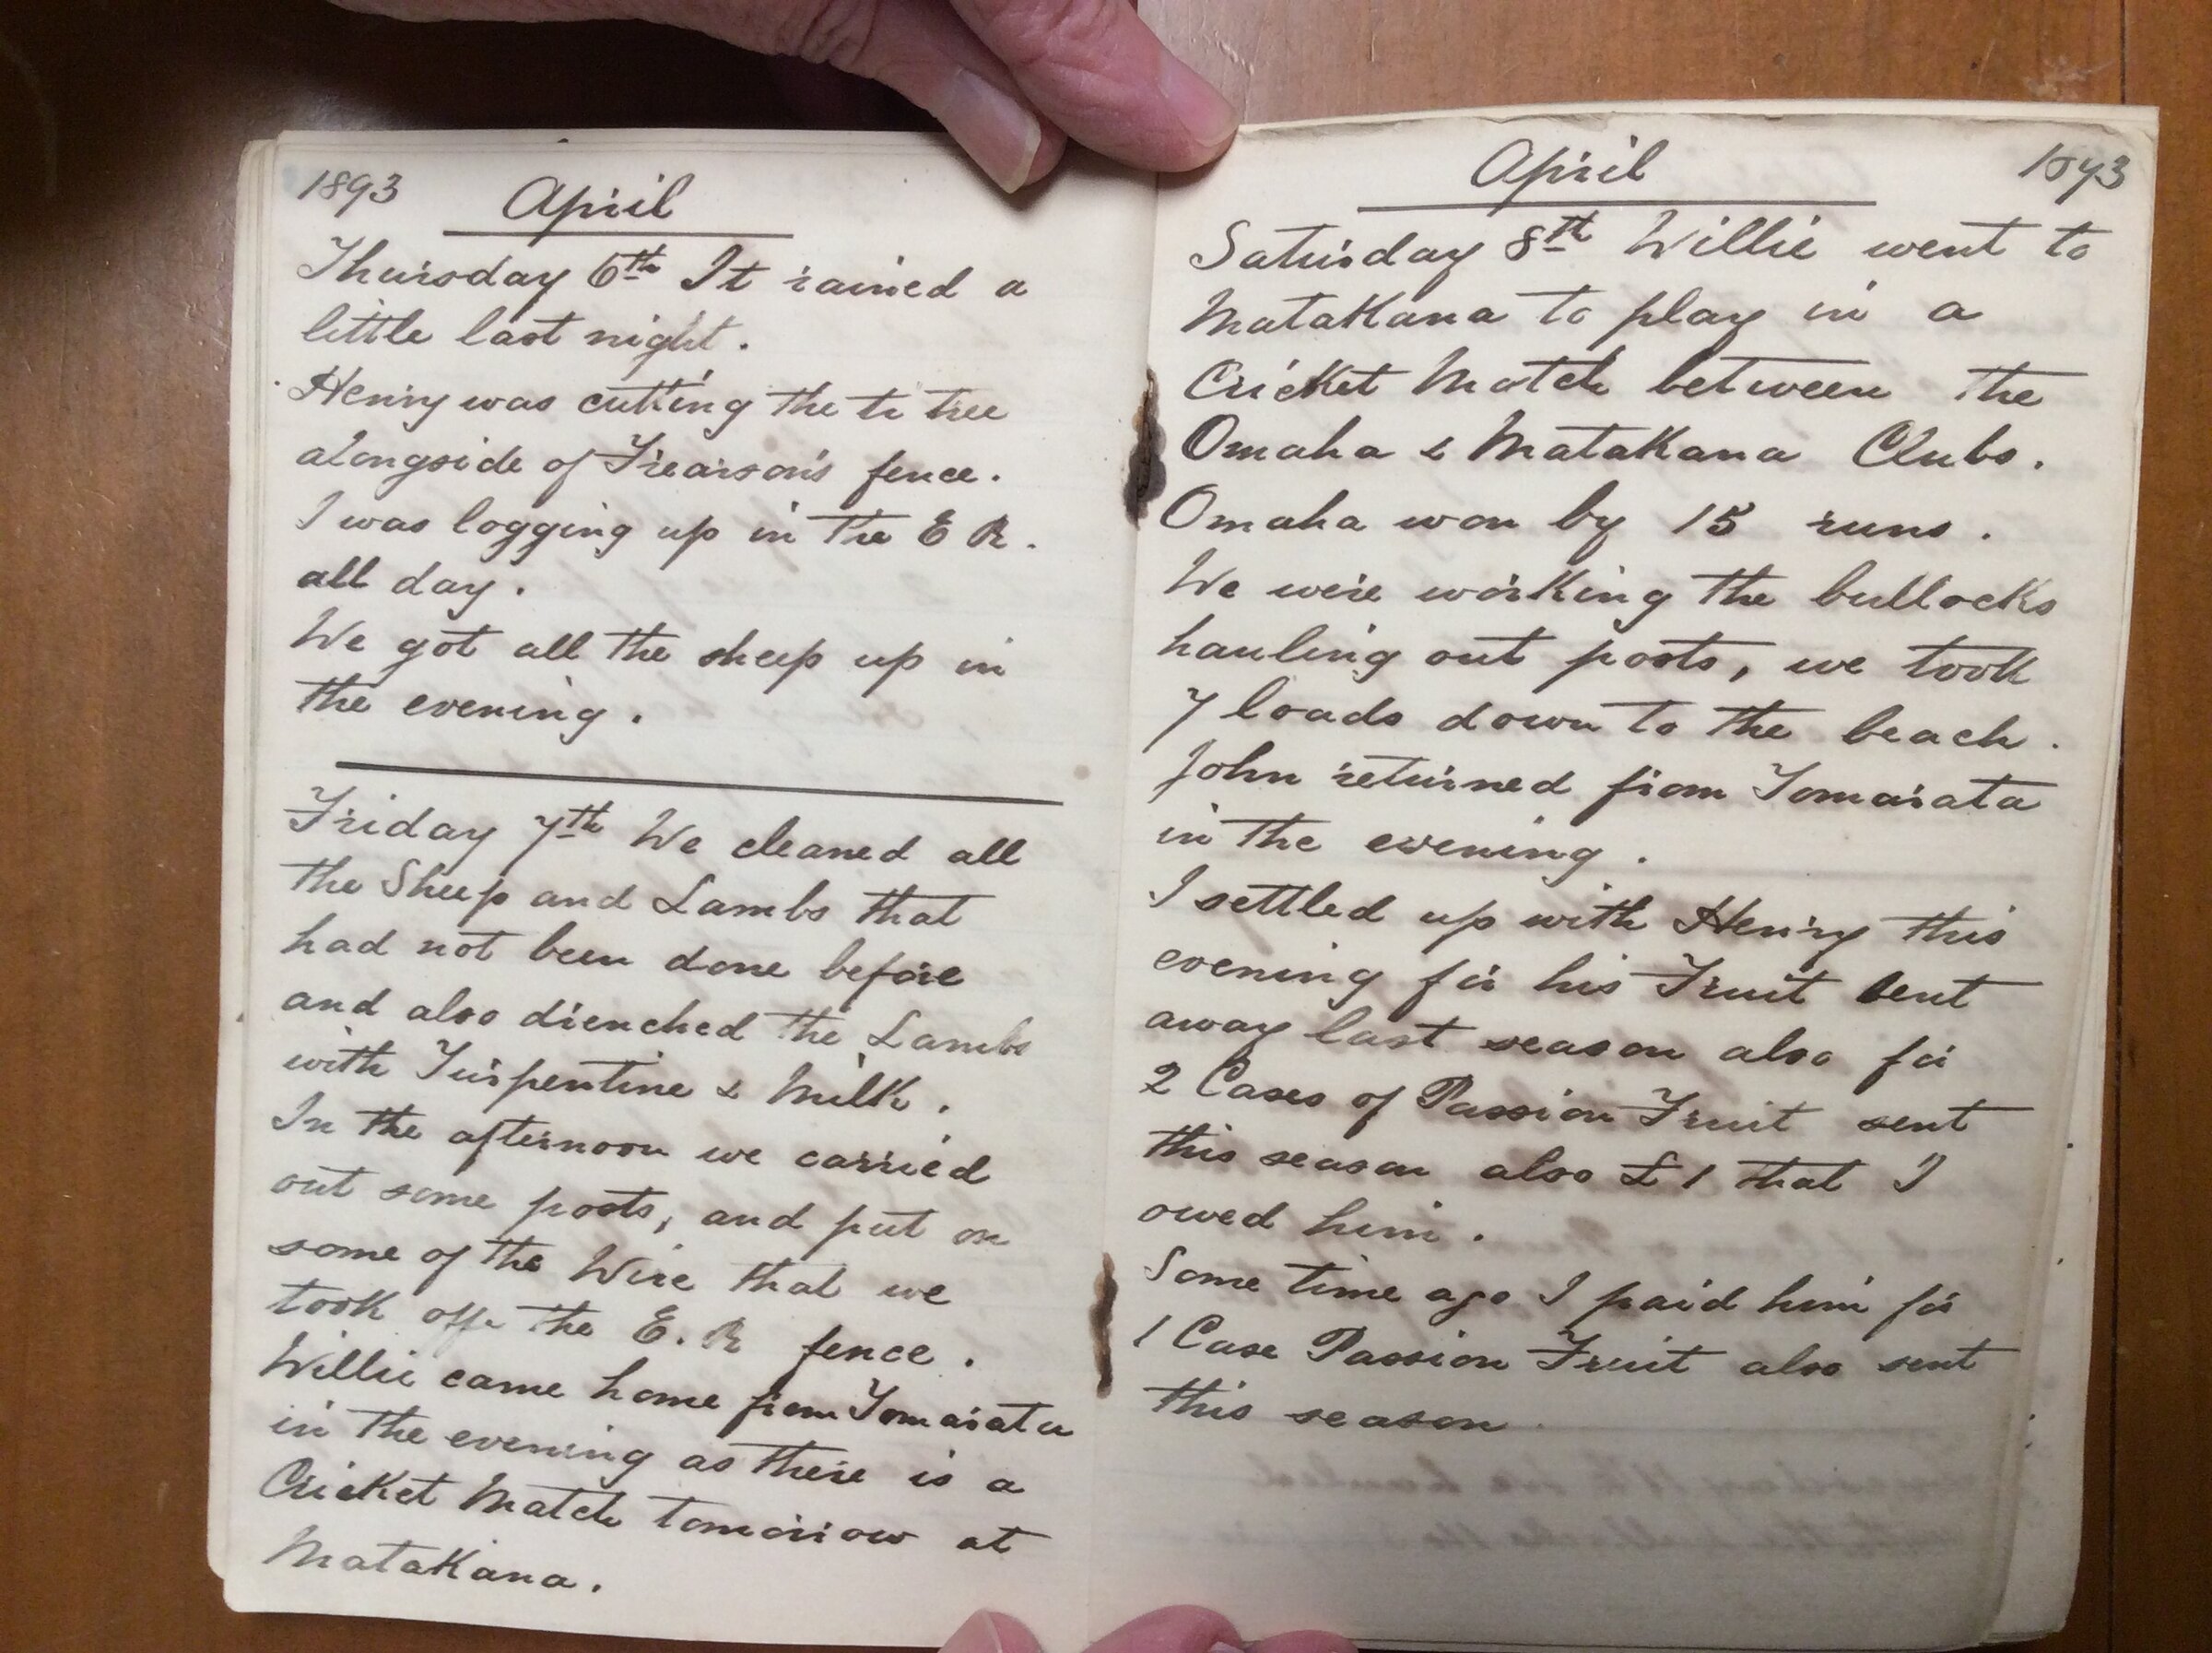 1893 April
Thursday 6th It rained a
little last night.
Henry was cutting the ti tree
alongside of Frearson's fence.
I was logging up in the E R.
all day.
We got all the sheep up in
the evening.
Friday 7th We cleaned all
the Sheep and Lambs that
had not been done before
and also drenched the Lambs
with Turpentine & Milk.
In the afternoon we carried
out some posts, and put on
some of the Wire that we
took off the E. R fence.
Willie came home from Tomarata
in the evening as there is a
Cricket Match tomorrow at
Matakana.
April 1893
Saturday 8th Willie went to
Matakana to play in a
Cricket Match between the
Omaha & Matakana Clubs.
Omaha won by 15 runs.
We were working the bullocks
hauling out posts, we took
7 loads down to the beach.
John returned from Tomarata
in the evening.
I settled up with Henry this
evening for his Fruit sent
away last season also for
2 Cases of Passion Fruit sent
this season also £1 that I
owed him.
Some time ago I paid him for
1 Case Passion Fruit also sent
this season